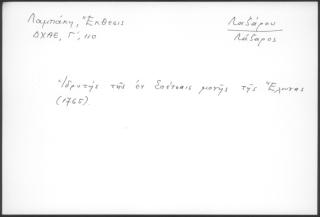 Λαμπάκη, Ἔκθεσις
ΔΧΑΕ, Γ', 110
Λαζάρου
Λάζαρος
Ἱδρυτής τῆς ἐν Σπέτσαις μονῆς τῆς Ἕλωνας
(1765)